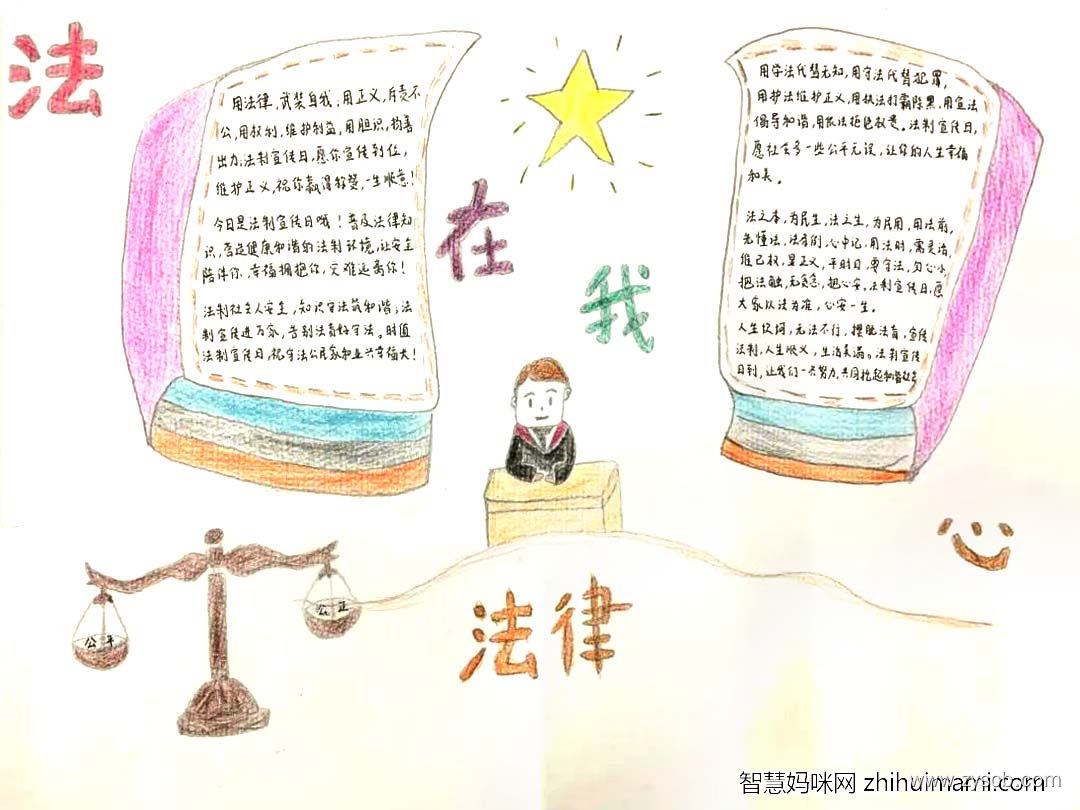 法
在
我
心
法律
用法律,武装自我,用正义,斥责不
公,用权利,维护利益,用胆识,扬善
出力;法制宣传日,愿你宣传到位,
维护正义,祝你赢得称赞,一生顺意!
今日是法制宣传日哦!普及法律知
识,营造健康和谐的法制环境,让安全
陪伴你,幸福拥抱你,灾难远离你!
法制社会人安全,知识守法筑和谐,法
制宣传进万家,告别法盲好守法。时值
法制宣传日,祝守法公民家和业兴幸福大!
用守法代替无知,用守法代替犯罪,
用护法维护正义,用执法打霸除黑,用宣法
倡导和谐,用依法拒绝歉意。法制宣传日,
愿社会多一些公平无误,让你的人生幸福
和长。
法之本,为民生,法之生,为民用,用法前,
先懂法,法条例,心中记,用法时,需灵活,
维己权,显正义,平时日,要守法,勿心小
把法触,无贪念,把心安,法制宣传日,愿
大家以法为准,心安一生。
人生坎坷,无法不行,摆脱法盲,宣传
法制,人生顺义,生活美满。法制宣传
日到,让我们一共努力,共同撑起和谐社会
公平
公正
智慧妈咪网 zhihuimami.com
www.zysob.com